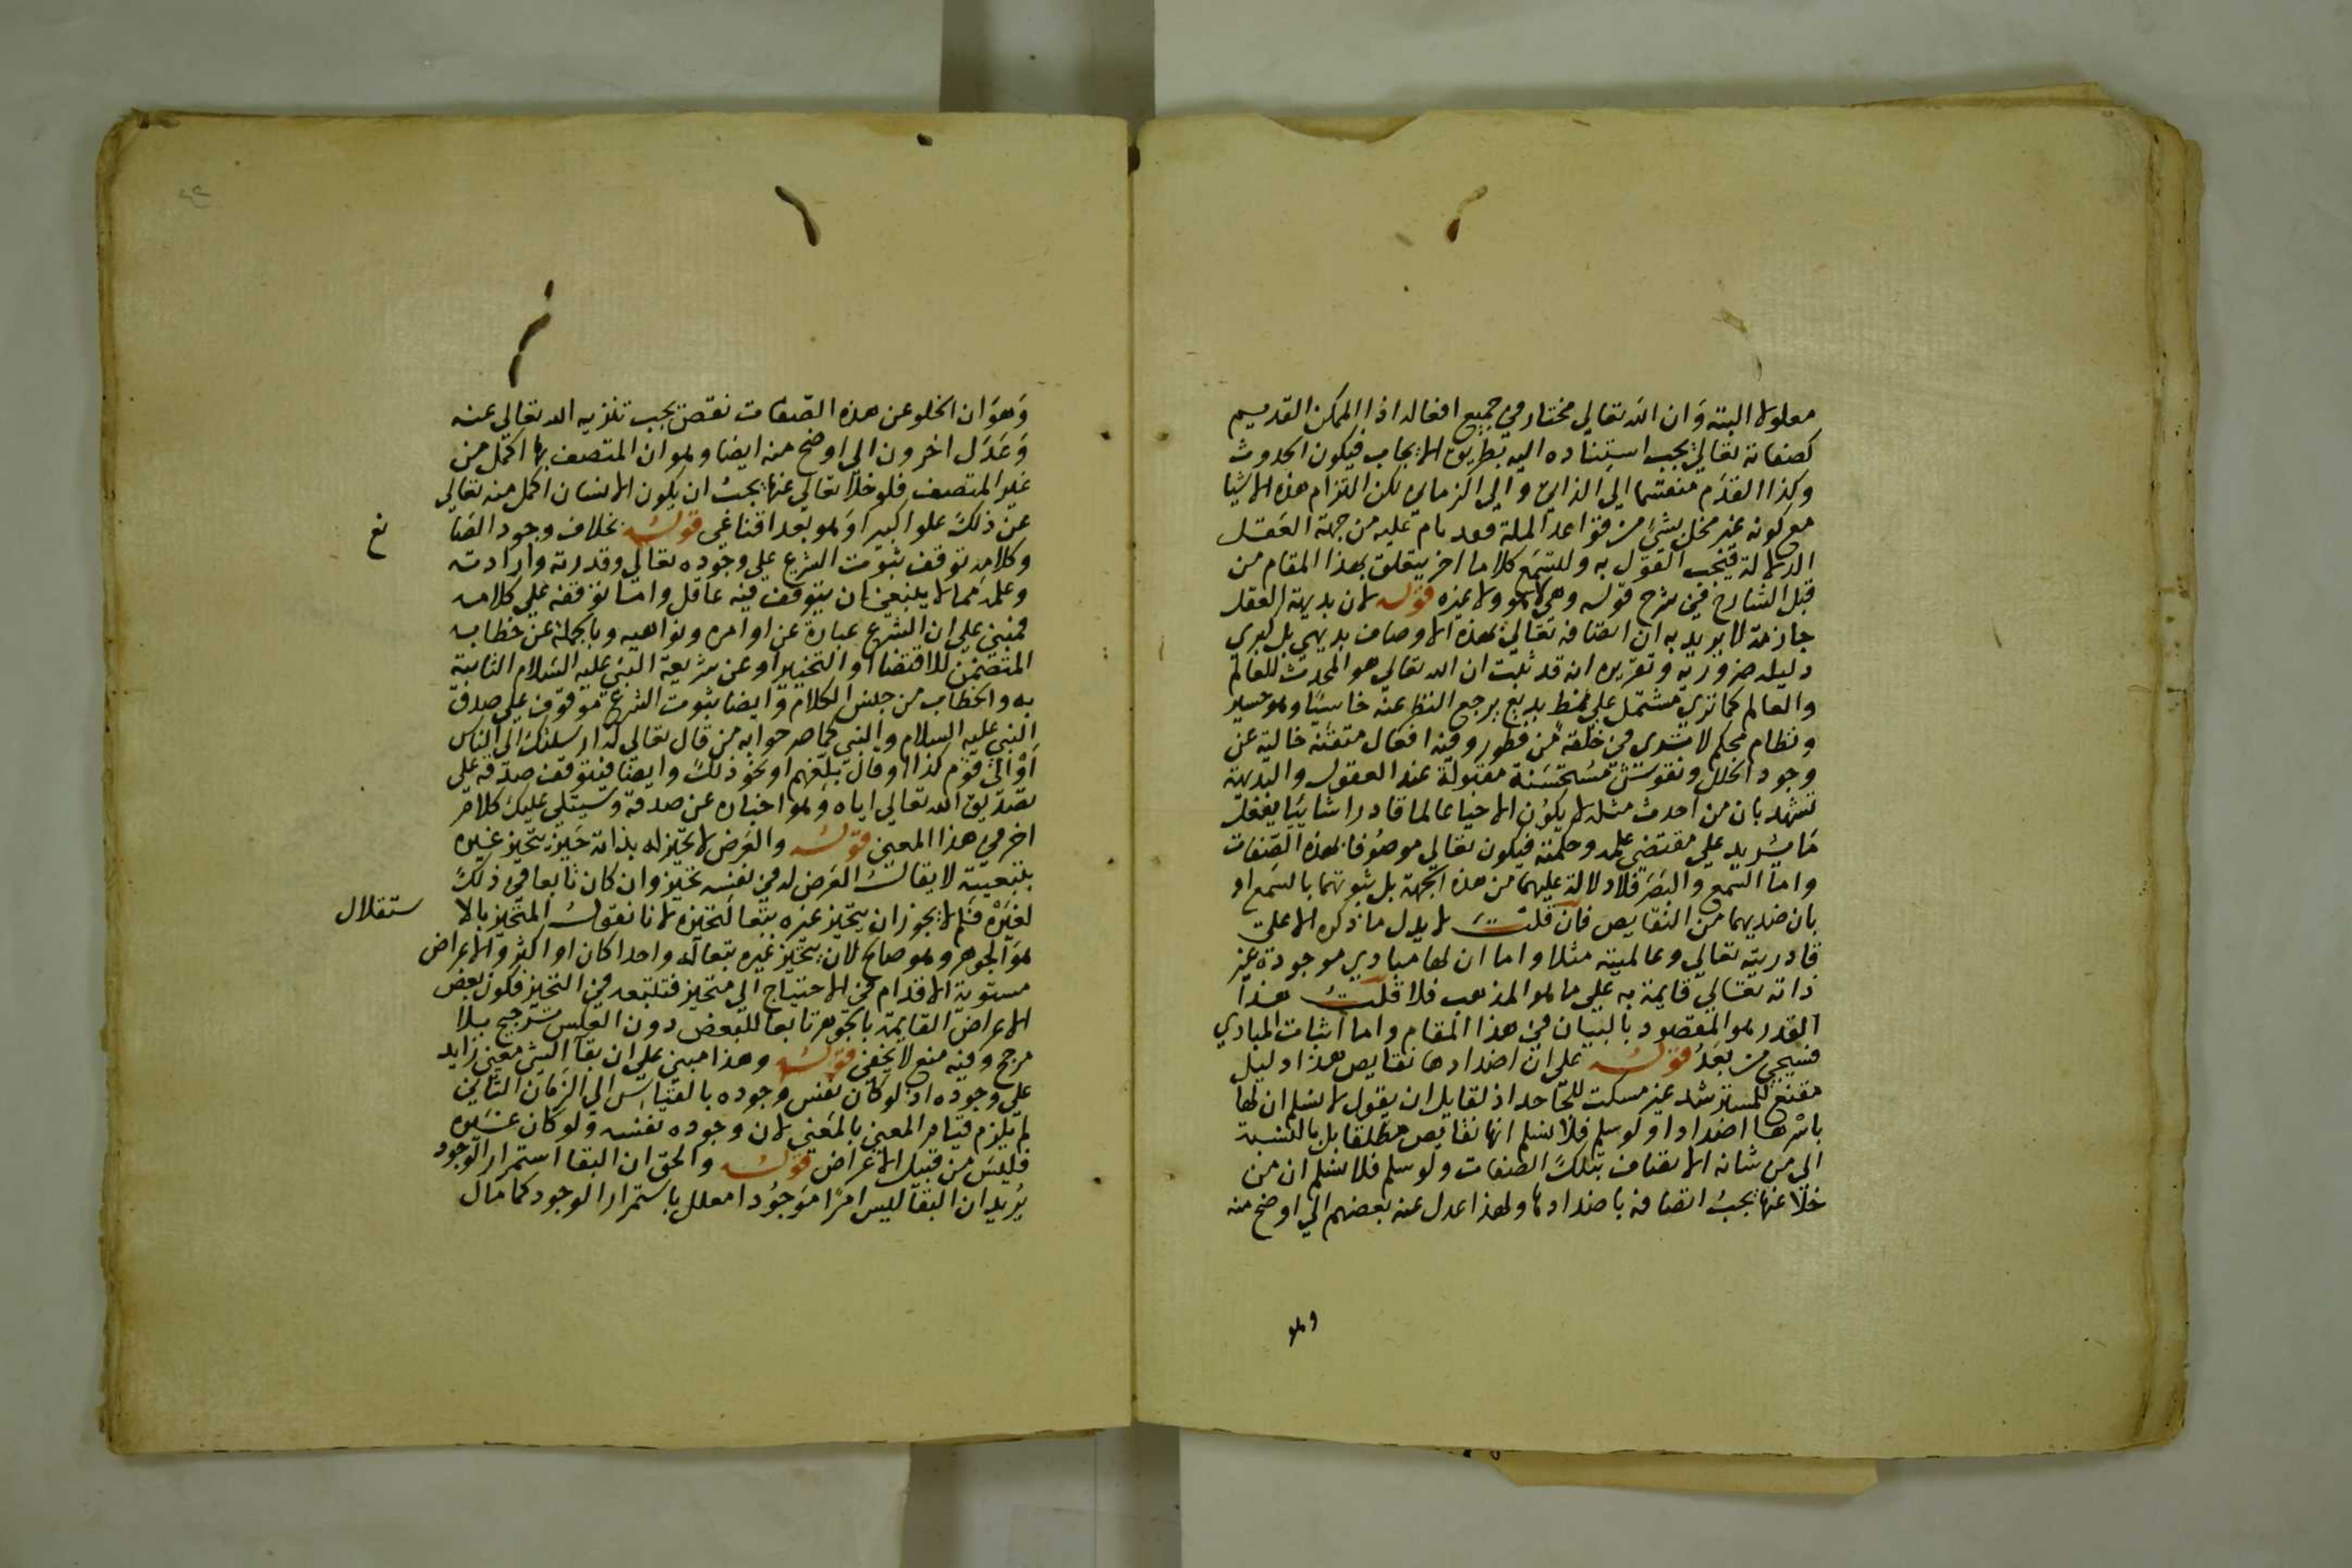 معلولا البتة وان الله تعالي مختار في جميع افعاله اذ الممكن القديم
كصفاته تعالي يجب استناده اليه بطريق الايجاب فيكون الحدوث
وكذا القدم منقسما الي الذاتي والي الزماني لكن التزام هذه الاشيا
مع كونه غير مخل بشي من قواعد الملة مما قام عليه من جهة العقل
الدلالة فيجب القول به ولتسمع كلاما اخر يتعلق بهذا المقام من
قبل الشارح في شرح قوله وهي لا هو ولا غيره قوله لان بديهة العقل
جازمة لا يريد به ان اتصافه تعالي بهذه الاوصاف بديهي بل كبري
دليله ضرورية وتقريره انه قد ثبت ان الله تعالي هو المحدث للعالم
والعالم كما تري مشتمل علي نمط بديع يرجع النظر عنه خاسئا وهو حسير
ونظام محكم لا تري في خلقه من فطور وفيه افعال متقنة خالية عن
وجود الخلل ونقوش مستحسنة مقبولة عند العقول والبديهة
تشهد بان من احدث مثله لا يكون الا حيا عالما قادرا شائيا يفعل
ما يريد علي مقتضي علمه وحكمته فيكون تعالي موصوفا بهذه الصفات
واما السمع والبصر فلا دلالة عليهما من هذه الجهة بل ثبوتهما بالسمع او
بان ضديهما من النقايص فان قلت لا يدل ما ذكره الا علي
قادريته تعالي وعالميته مثلا واما ان لها مبادي موجودة غير
ذاته تعالي قايمة به علي ما هو المذهب فلا قلت هذا
القدر هو المقصود بالبيان في هذا المقام واما اثبات المبادي
فسيجي من بعد قوله علي ان اضدادها نقايص هذا دليل
مقنع للمسترشد غير مسكت للجاحد اذ لقايل ان يقول لا نسلم ان لها
باسرها اضدادا ولو سلم فلا نسلم انها نقايص مطلقا بل بالنسبة
الي من شانه الاتصاف بتلك الصفات ولو سلم فلا نسلم ان من
خلا عنها يجب اتصافه باضدادها ولهذا عدل عنه بعضهم الي اوضح منه
وهو
وهو ان الخلو عن هذه الصفات نقص يجب تنزيه الله تعالي عنه
وعدل اخرون الي اوضح منه ايضا وهو ان المتصف بها اكمل من
غير المتصف فلو خلا تعالي عنها يجب ان يكون الانسان اكمل منه تعالي
عن ذلك علوا كبيرا وهو بعد اقناعي قوله بخلاف وجود الصا
نع
وكلامه توقف ثبوت الشرع علي وجوده تعالي وقدرته وارادته
وعلمه مما لا ينبغي ان يتوقف فيه عاقل واما توقفه علي كلامه
فمبني علي ان الشرع عبارة عن اوامره ونواهيه وبالجملة عن خطابه
المتضمن للاقتضا او التخيير او عن شريعة النبي عليه السلام الثابتة
به والخطاب من جنس الكلام وايضا ثبوت الشرع موقوف علي صدق
النبي عليه السلام والنبي كما صرحوا به من قال تعالي له ارسلنك الي الناس
او الي قوم كذا او قال بلغهم او نحو ذلك وايضا فتوقف صدقه علي
تصديق الله تعالي اياه وهو اخباره عن صدقه وسيتلي عليك كلام
اخر في هذا المعني قوله والعرض لا تحيز له بذاته حتي يتحيز غيره
بتبعيته لا يقال العرض له في نفسه تحيز وان كان تابعا في ذلك
لغيره فلم لا يجوز ان يتحيز غيره تبعا لتحيزه لانا نقول المتحيز بالا
ستقلال
هو الجوهر وهو صالح لان يتحيز غيره تبعا له واحدا كان او اكثر والاعراض
مستوية الاقدام في الاحتياج الي متحيز فتتبعه في التحيز فكون بعض
الاعراض القايمة بالجوهر تابعا للبعض دون العكس ترجيح بلا
مرجح وفيه منع لا يخفي قوله وهذا مبني علي ان بقا الشي معني زايد
علي وجوده اذ لو كان نفس وجوده بالقياس الي الزمان الثاني
لم يلزم قيام المعني بالمعني لان وجوده نفسه ولو كان غيره
فليس من قبيل الاعراض قوله والحق ان البقا استمرار الوجود
يريد ان البقا ليس امرا موجودا معلل باستمرار الوجود كما قال